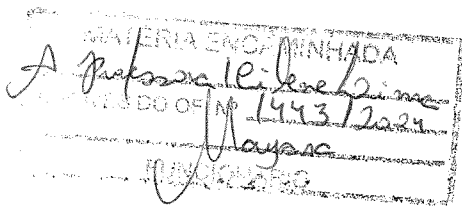 MATÉRIA ENCAMINHADA
A professora Lima
DO OF Nº 1443/2024
Mayara
FUNCIONÁRIO